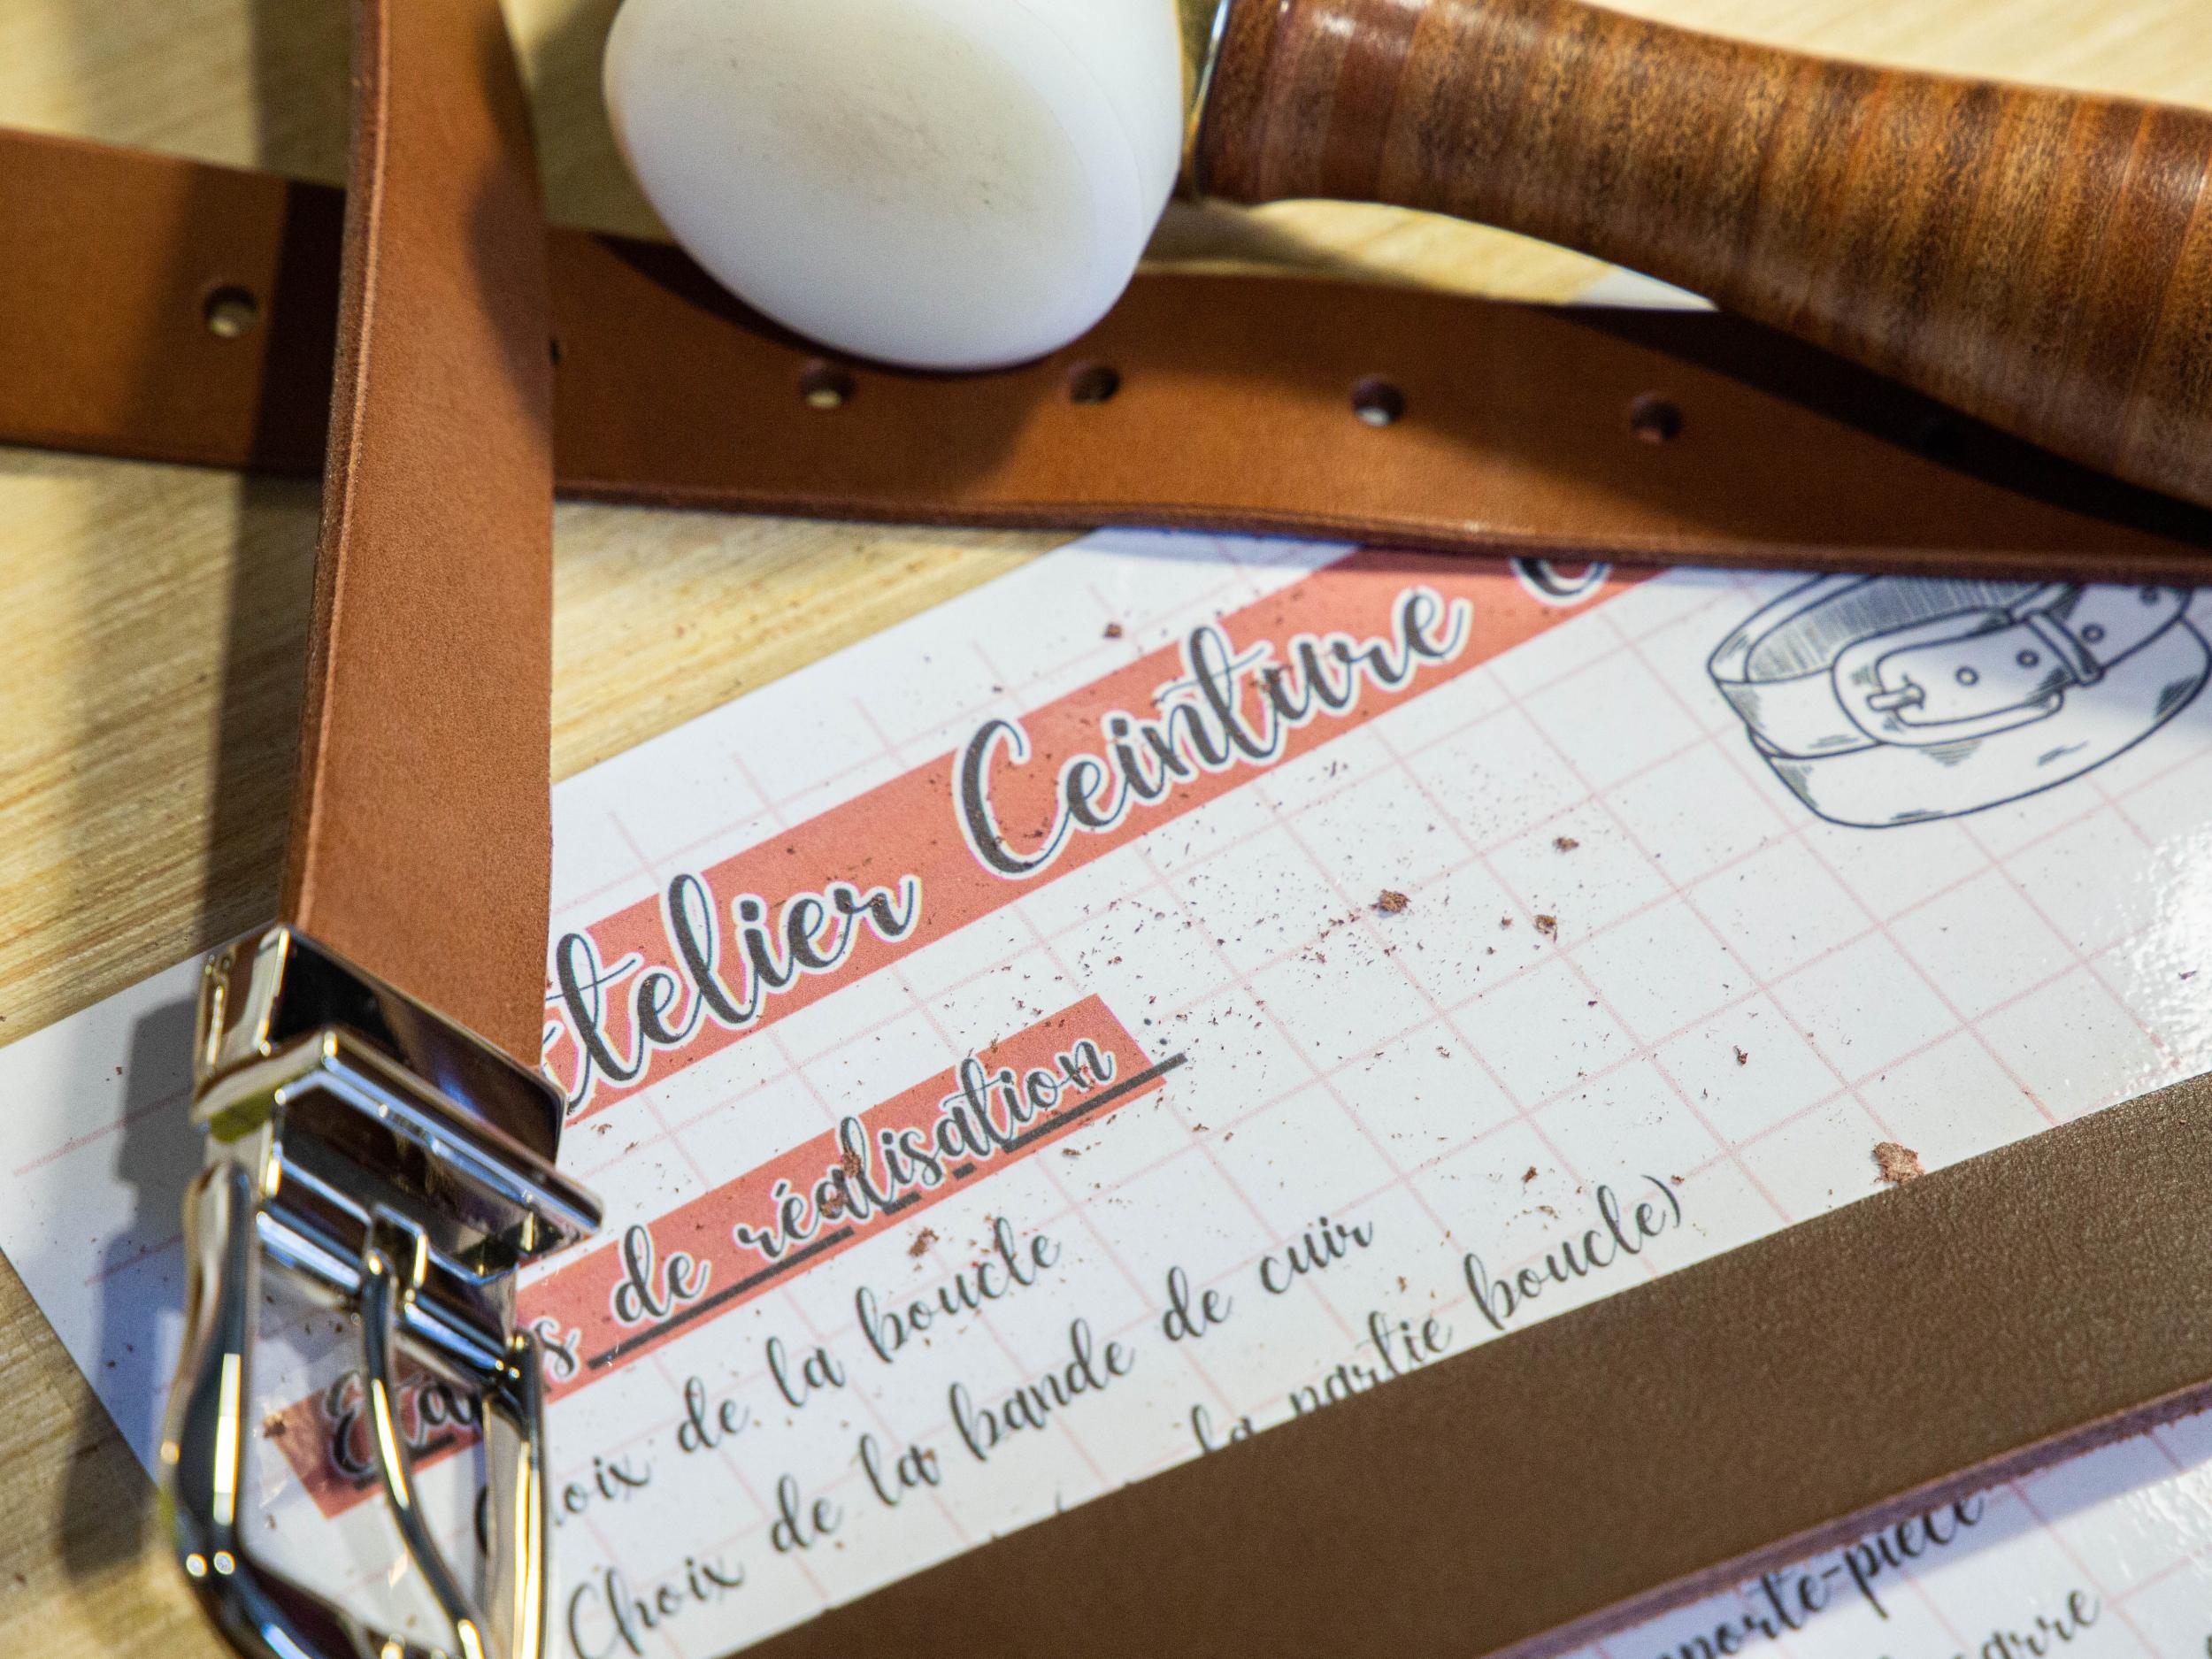 Atelier Ceinture
Étapes de réalisation
Choix de la boucle
Choix de la bande de cuir
la partie boucle)
emporte-pièce